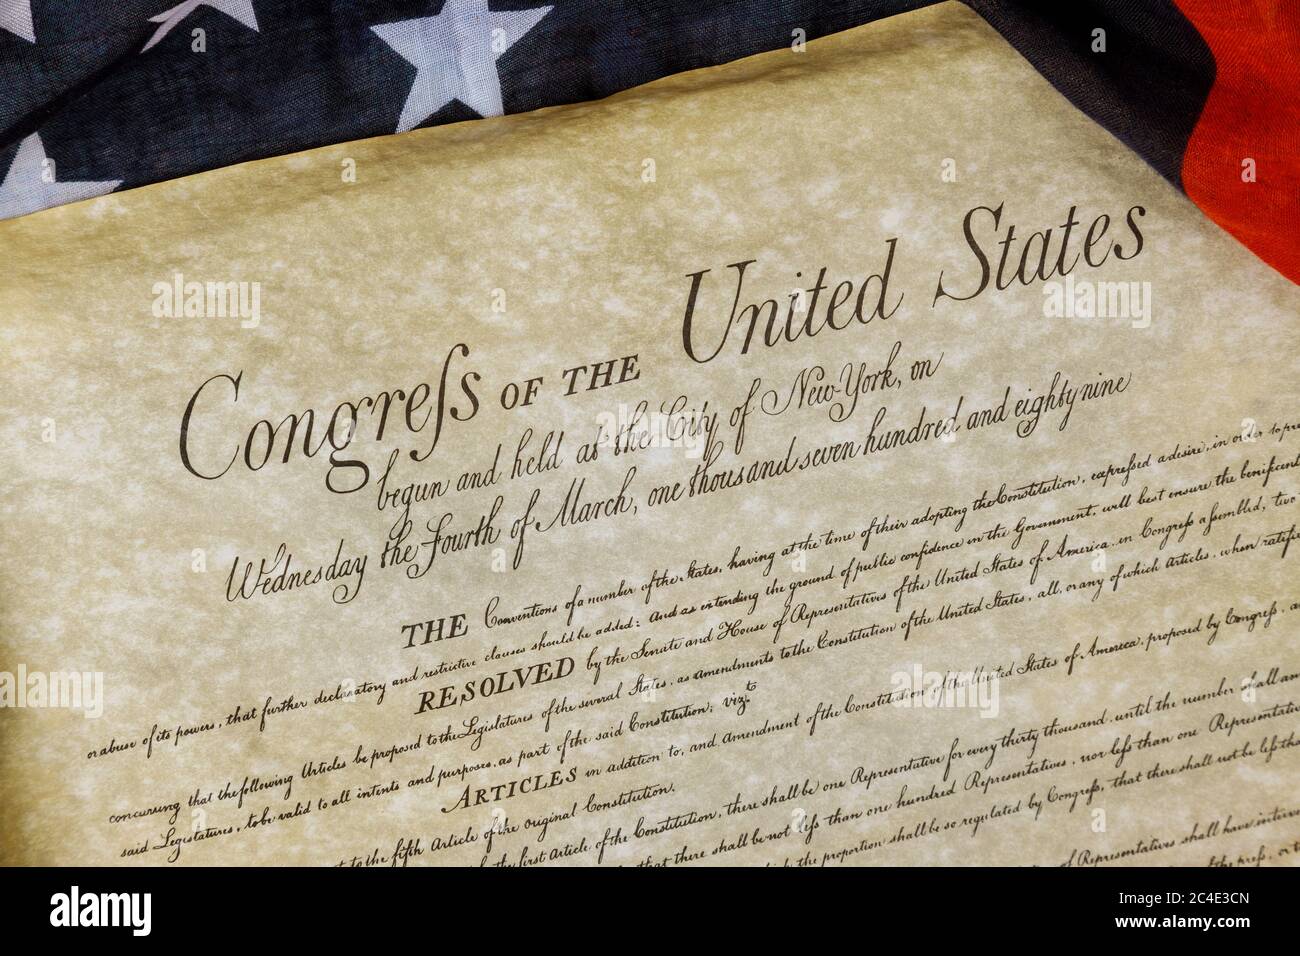 Congreſs OF THE United States
begun and held at the City of New-York, on
Wednesday the Fourth of March, one thousand seven hundred and eighty nine
THE Conventions of a number of the States, having at the time of their adopting the Constitution, expreſsed a desire, in order to
or abuse of its powers, that further declaratory and restrictive clauses should be added: And as extending the ground of public confidence in the Government, will best ensure the beneficent
RESOLVED by the Senate and House of Representatives of the United States of America, in Congreſs aſsembled, two
concurring that the following Articles be proposed to the Legislatures of the several States, as amendments to the Constitution of the United States, all, or any of which Articles, when
said Legislatures, to be valid to all intents and purposes, as part of the said Constitution; vizt.
ARTICLES in addition to, and amendment of the Constitution of the United States of America, proposed by Congreſs,
to the fifth Article of the original Constitution.
the first Article of the Constitution, there shall be one Representative for every thirty thousand, until the number shall
that there shall be not leſs than one hundred Representatives, nor leſs than one Representative
the proportion shall be so regulated by Congreſs, that there shall not be leſs
of Representatives shall have
alamy
alamy
Image ID: 2C4E3CN
www.alamy.com